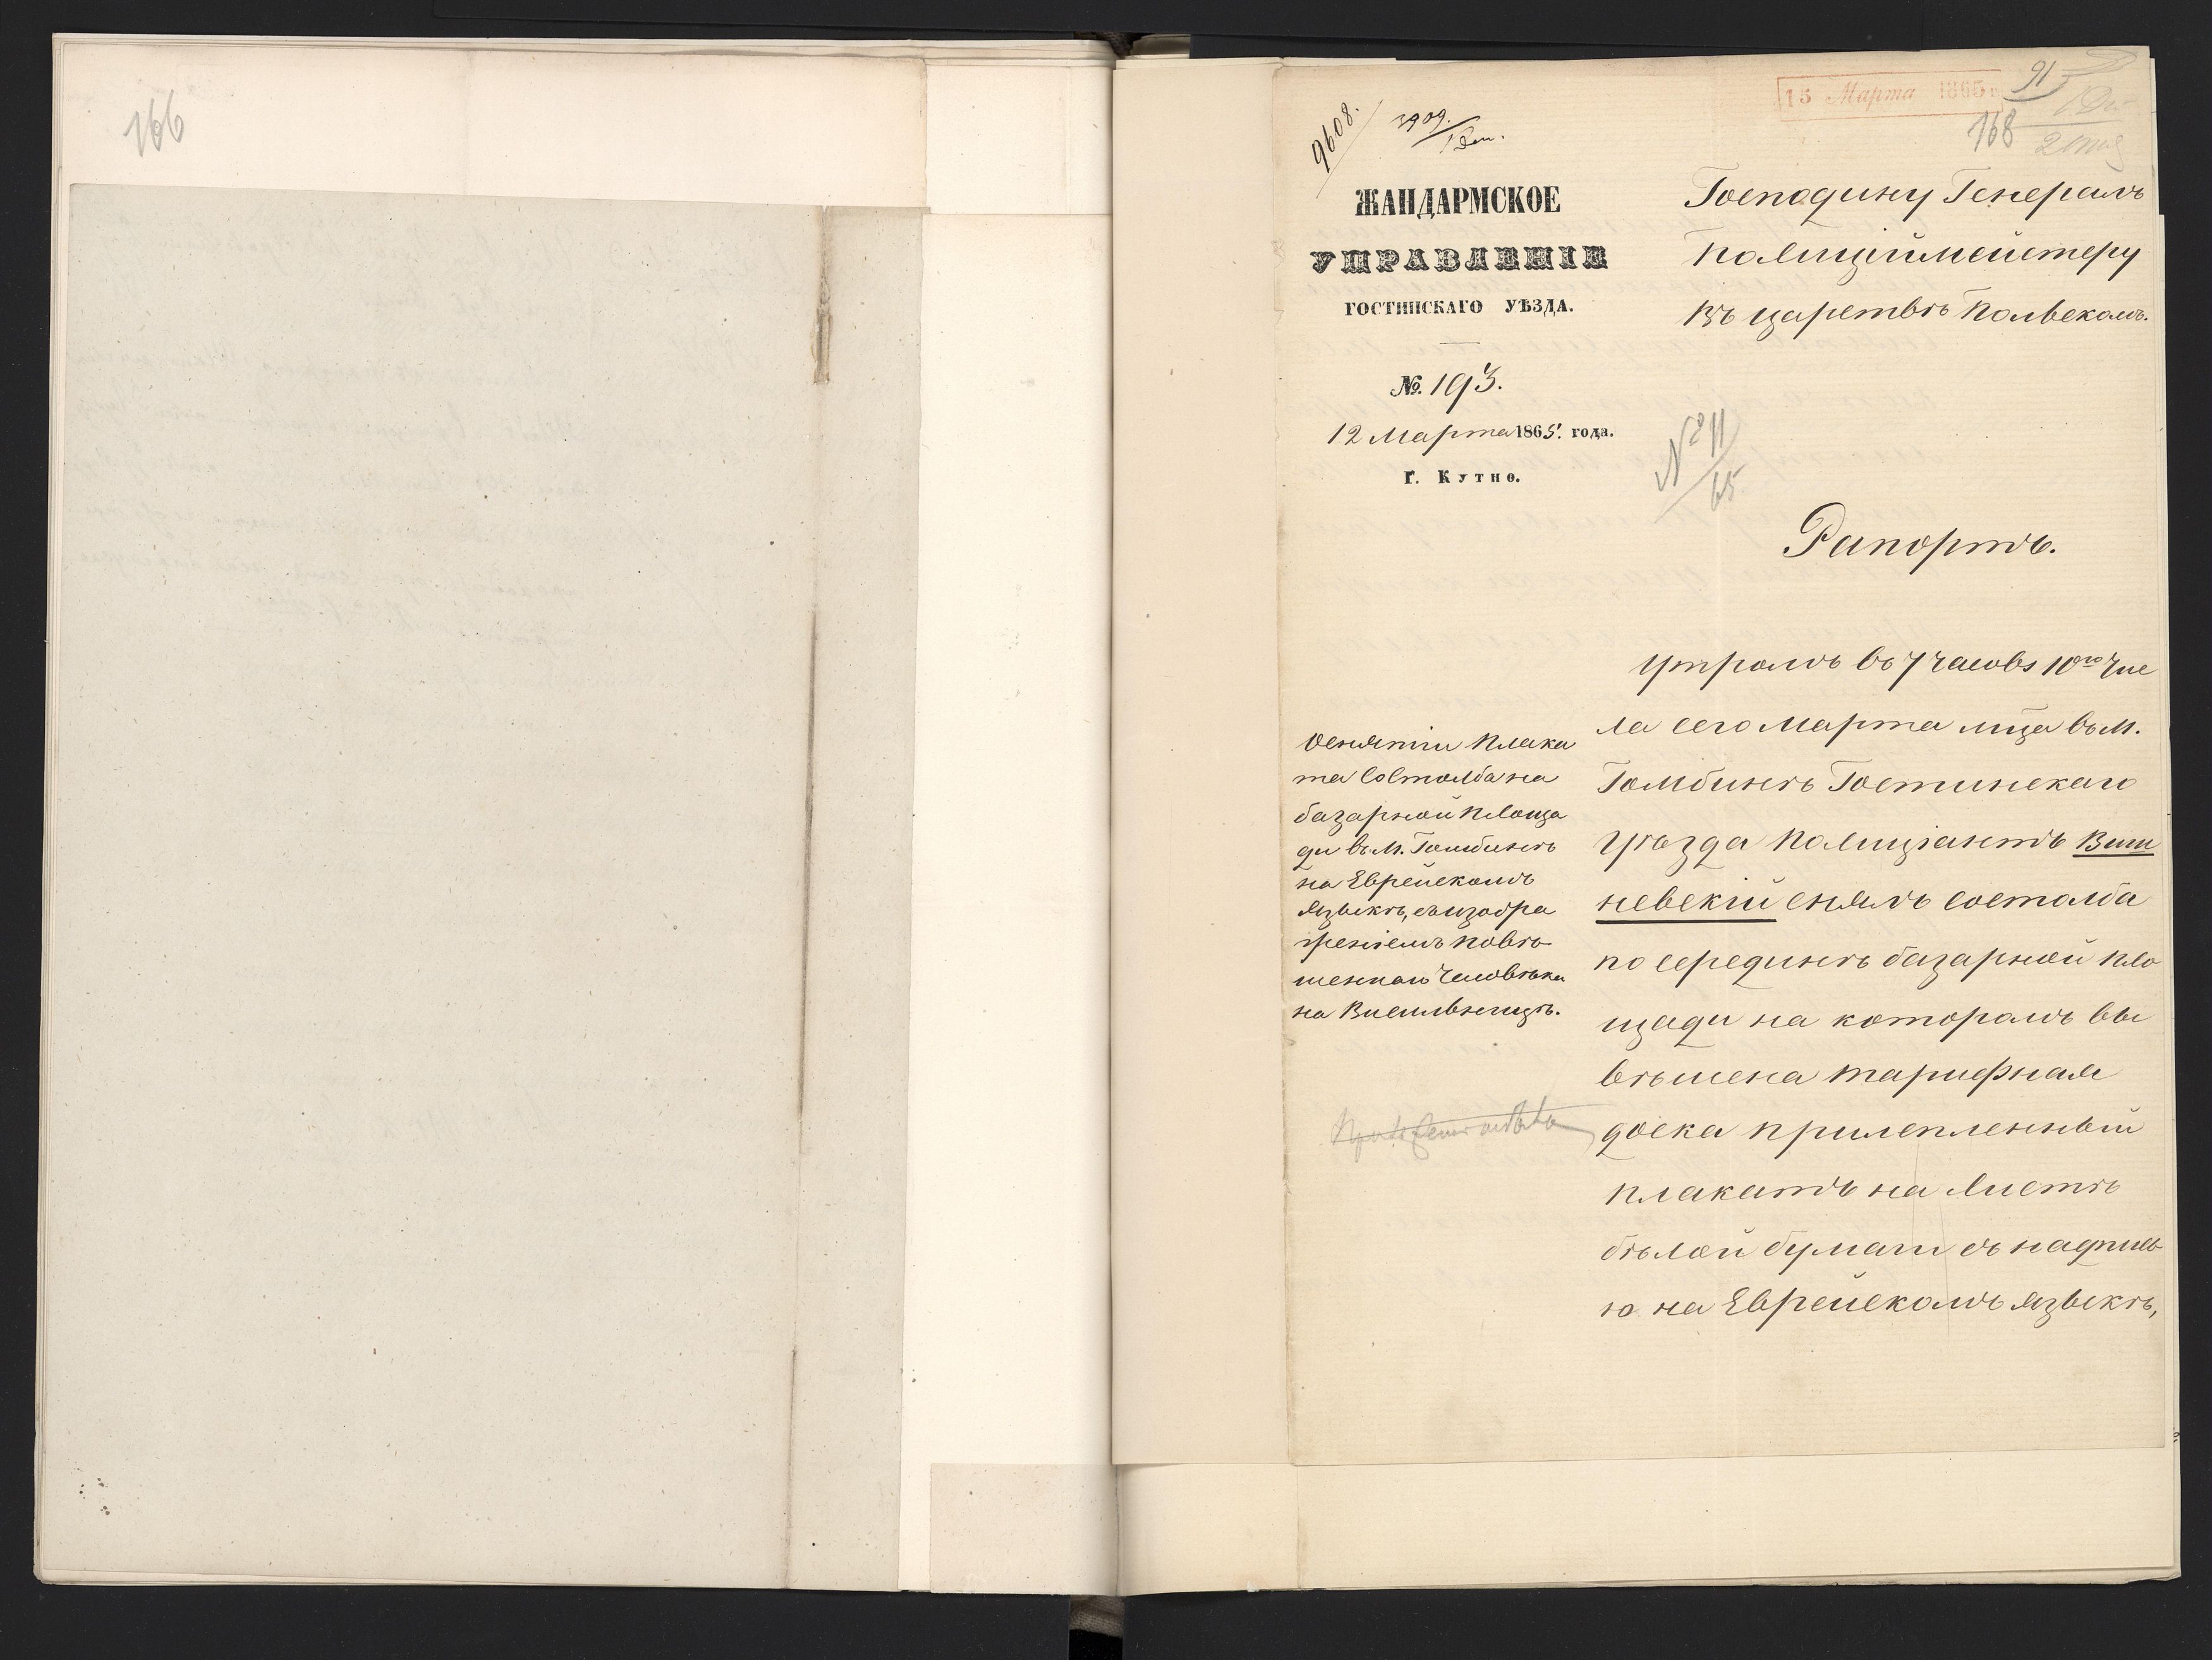 166
15 Марта 1865
91
168
9608.
3909.
1 Деп.
ЖАНДАРМСКОЕ
УПРАВЛЕНІЕ
ГОСТИНСКАГО УѢЗДА.
№. 193.
12 Марта 1865. года.
Г. Кутно.
Господину Генералъ
Полиціймейстеру
Въ царствѣ Польскомъ.
№ 11
65
Рапортъ.
О снятіи плака
та со столба на
базарной площа
ди въ М. Гомбинѣ
на Еврейскомъ
языкѣ, съ изобра
женіемъ повѣ
шеннаго Человѣка
на Висѣльницѣ.
Утромъ въ 7 часовъ 10го Чис
ла сего Марта мца въ М.
Гомбинѣ Гостинскаго
Уѣзда полиціантъ Виш
невскій снялъ со столба
по серединѣ базарной пло
щади на которомъ вы
вѣшена тарифная
доска прилепленный
плакатъ на листѣ
бѣлой бумаги съ надпись
ю на Еврейскомъ языкѣ,